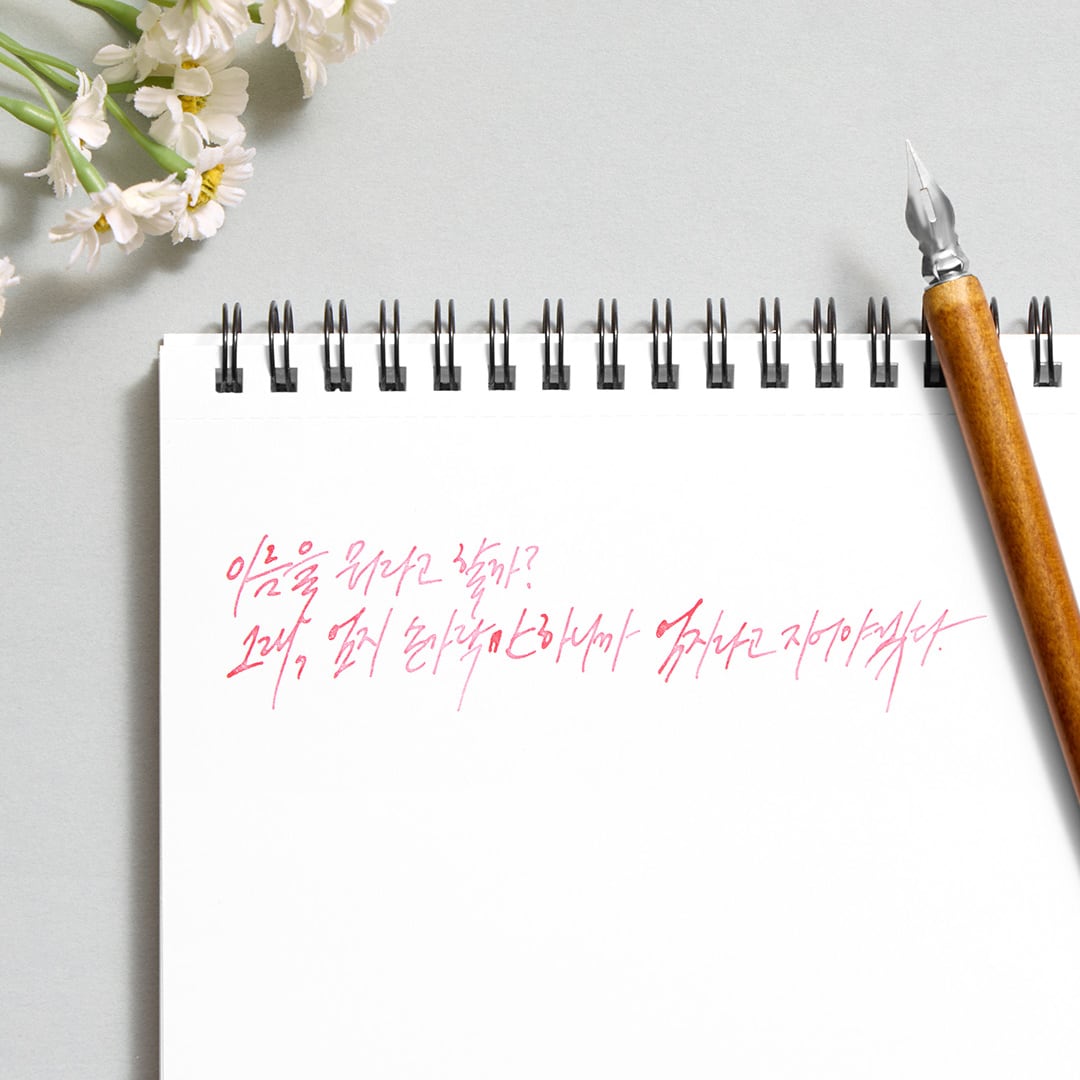 이름을 뭐라고 할까?
그래, 엄지 손가락만하니까 엄지라고 지어야겠다.